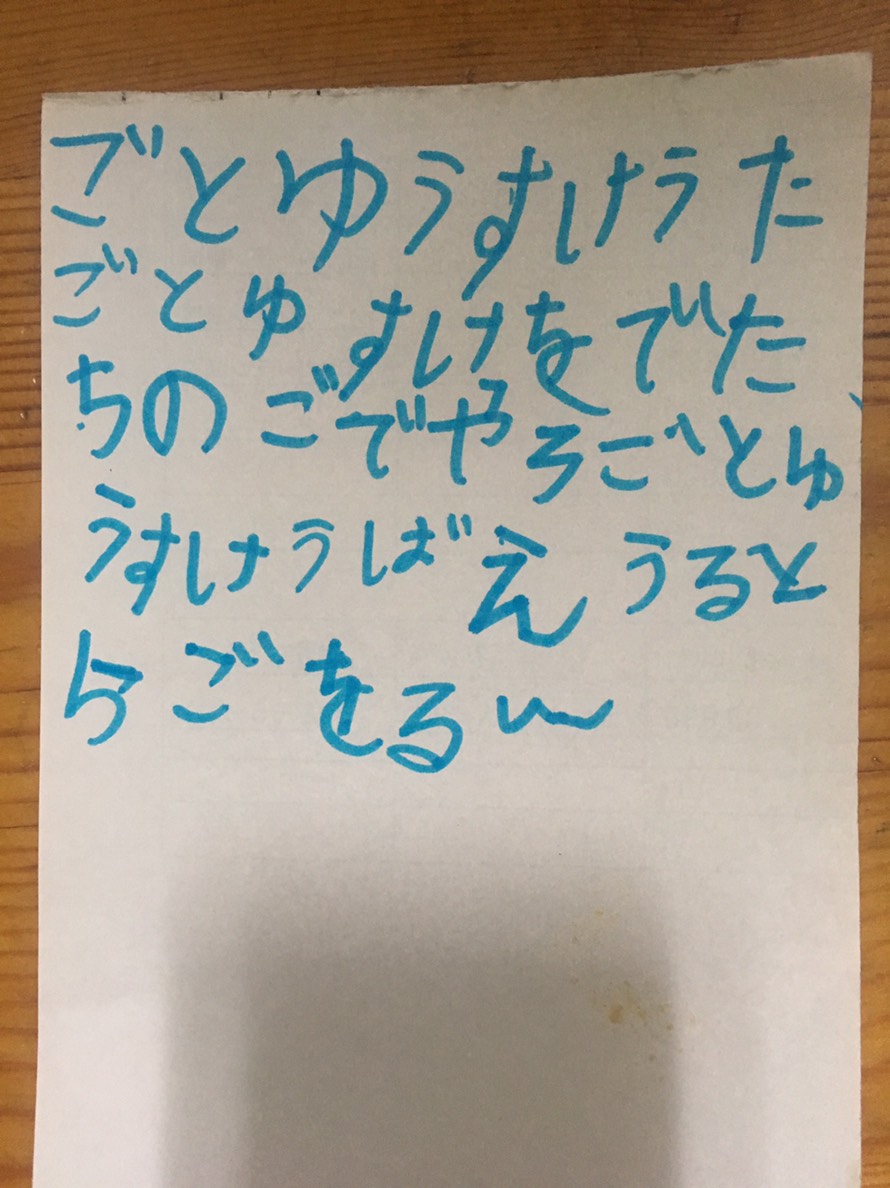 ごとゆうすけうた
ごとゆすけをでた
ちのごでやろごとゆ
うすけうばえうると
らごをる〜